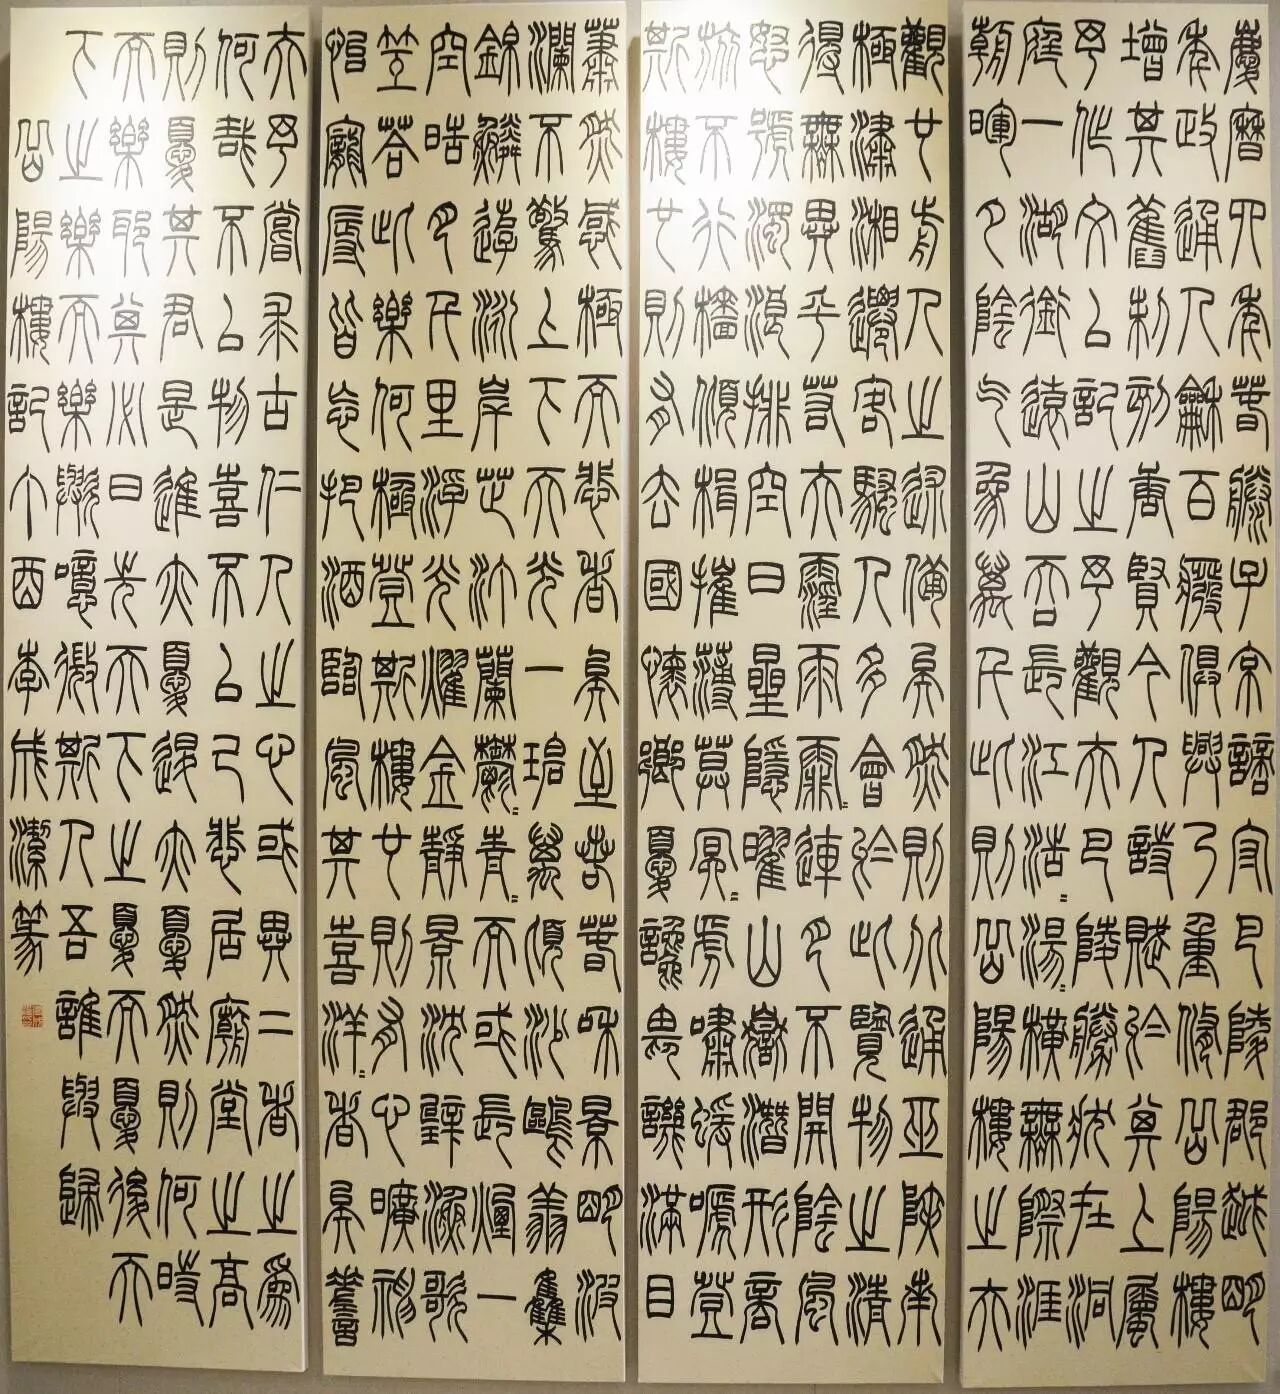 慶曆四年春滕子京謫守巴陵郡越明
年政通人和百廢俱興乃重修岳陽樓
增其舊制刻唐賢今人詩賦於其上屬
予作文以記之予觀夫巴陵勝狀在洞
庭一湖銜遠山吞長江浩〻湯〻橫無際涯
朝暉夕陰氣象萬千此則岳陽樓之大
觀也前人之述備矣然則北通巫峽南
極瀟湘遷客騷人多會於此覽物之情
得無異乎若夫霪雨霏〻連月不開陰風
怒號濁浪排空日星隱曜山嶽潛形商
旅不行檣傾楫摧薄暮冥〻虎嘯猿啼登
斯樓也則有去國懷鄉憂讒畏譏滿目
蕭然感極而悲者矣至若春和景明波
瀾不驚上下天光一碧萬頃沙鷗翔集
錦鱗游泳岸芷汀蘭鬱〻青〻而或長煙一
空皓月千里浮光耀金靜景沈璧漁歌
互答此樂何極登斯樓也則有心曠神
怡寵辱皆忘把酒臨風其喜洋〻者矣嗟
夫予嘗求古仁人之心或異二者之為
何哉不以物喜不以己悲居廟堂之高
則憂其君是進亦憂退亦憂然則何時
而樂耶其必曰先天下之憂而憂後天
下之樂而樂歟噫微斯人吾誰與歸
岳陽樓記丁酉李成潔篆